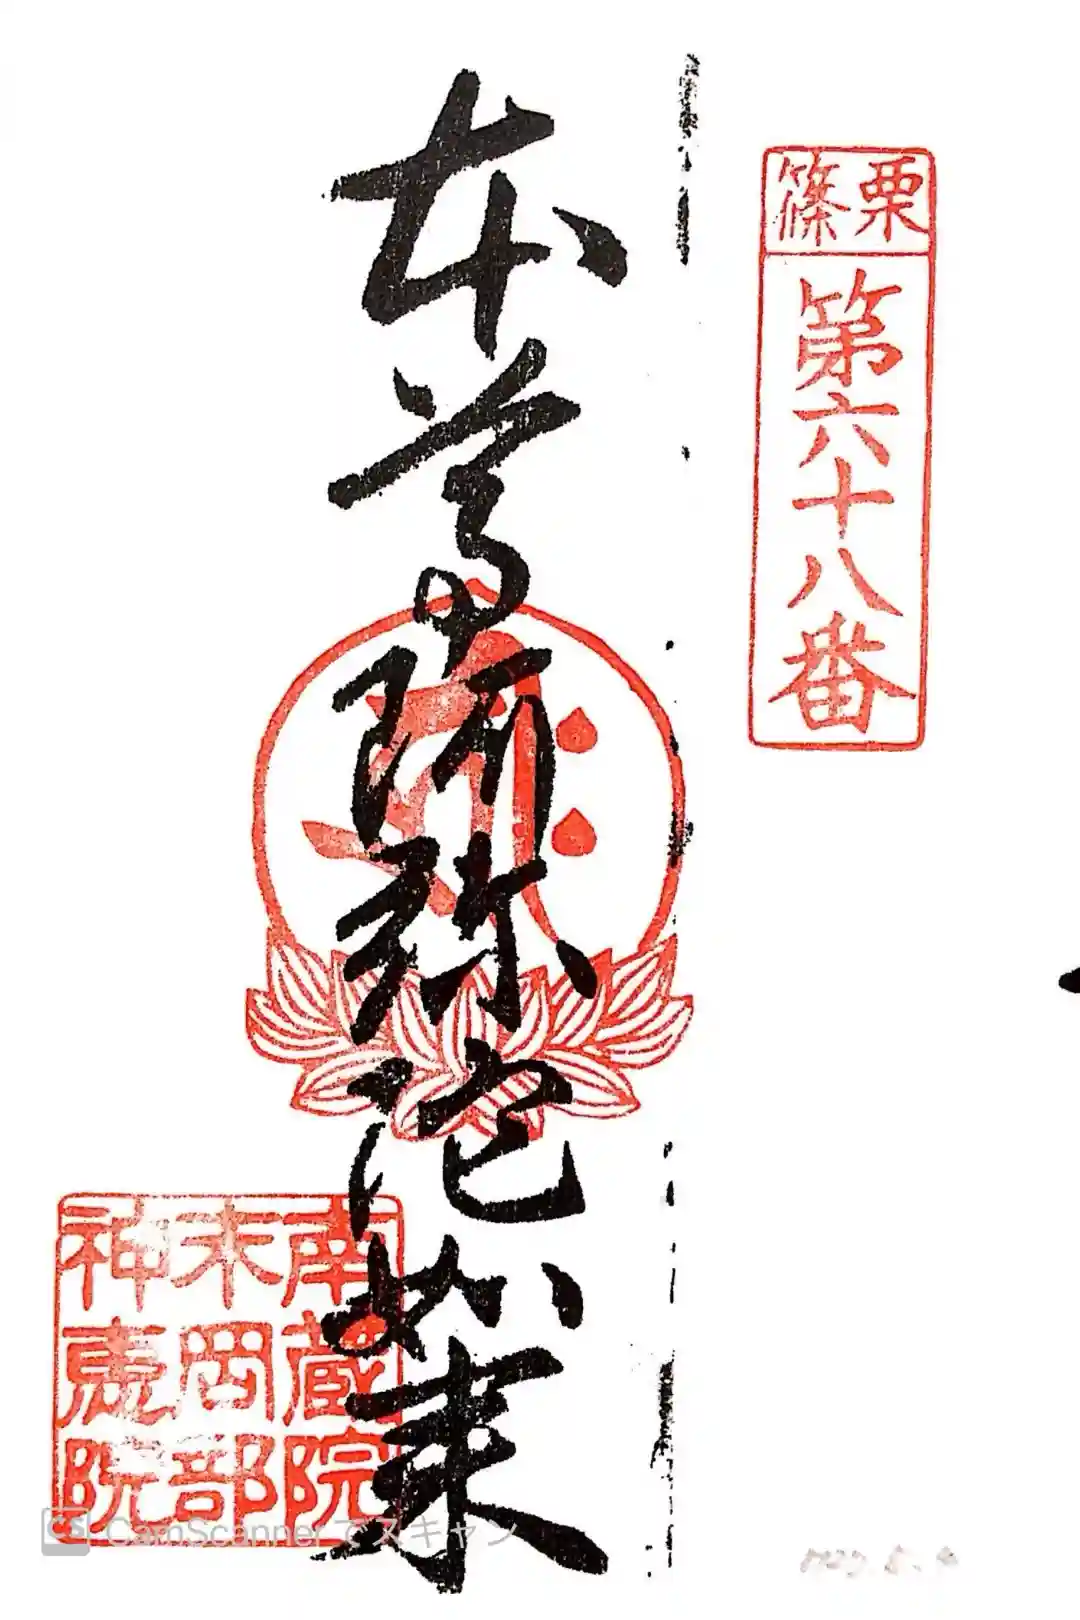 篠栗
第六十八番
本尊阿弥陀如来
南蔵院
末岡部
神恵院
CS CamScannerでスキャン